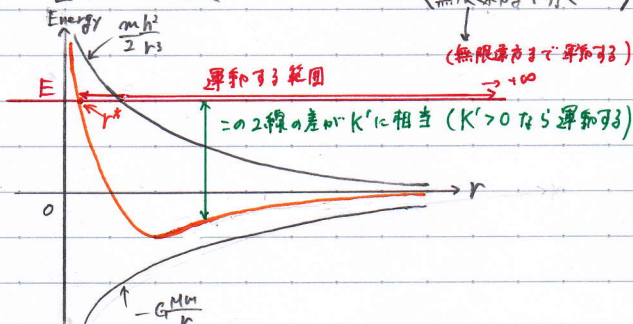 Energy
mh²/2r³
(無限遠方まで運動する)
→ +∞
運動する範囲
E
r*
この2線の差がK'に相当 (K'>0なら運動する)
r
0
-G Mm/r